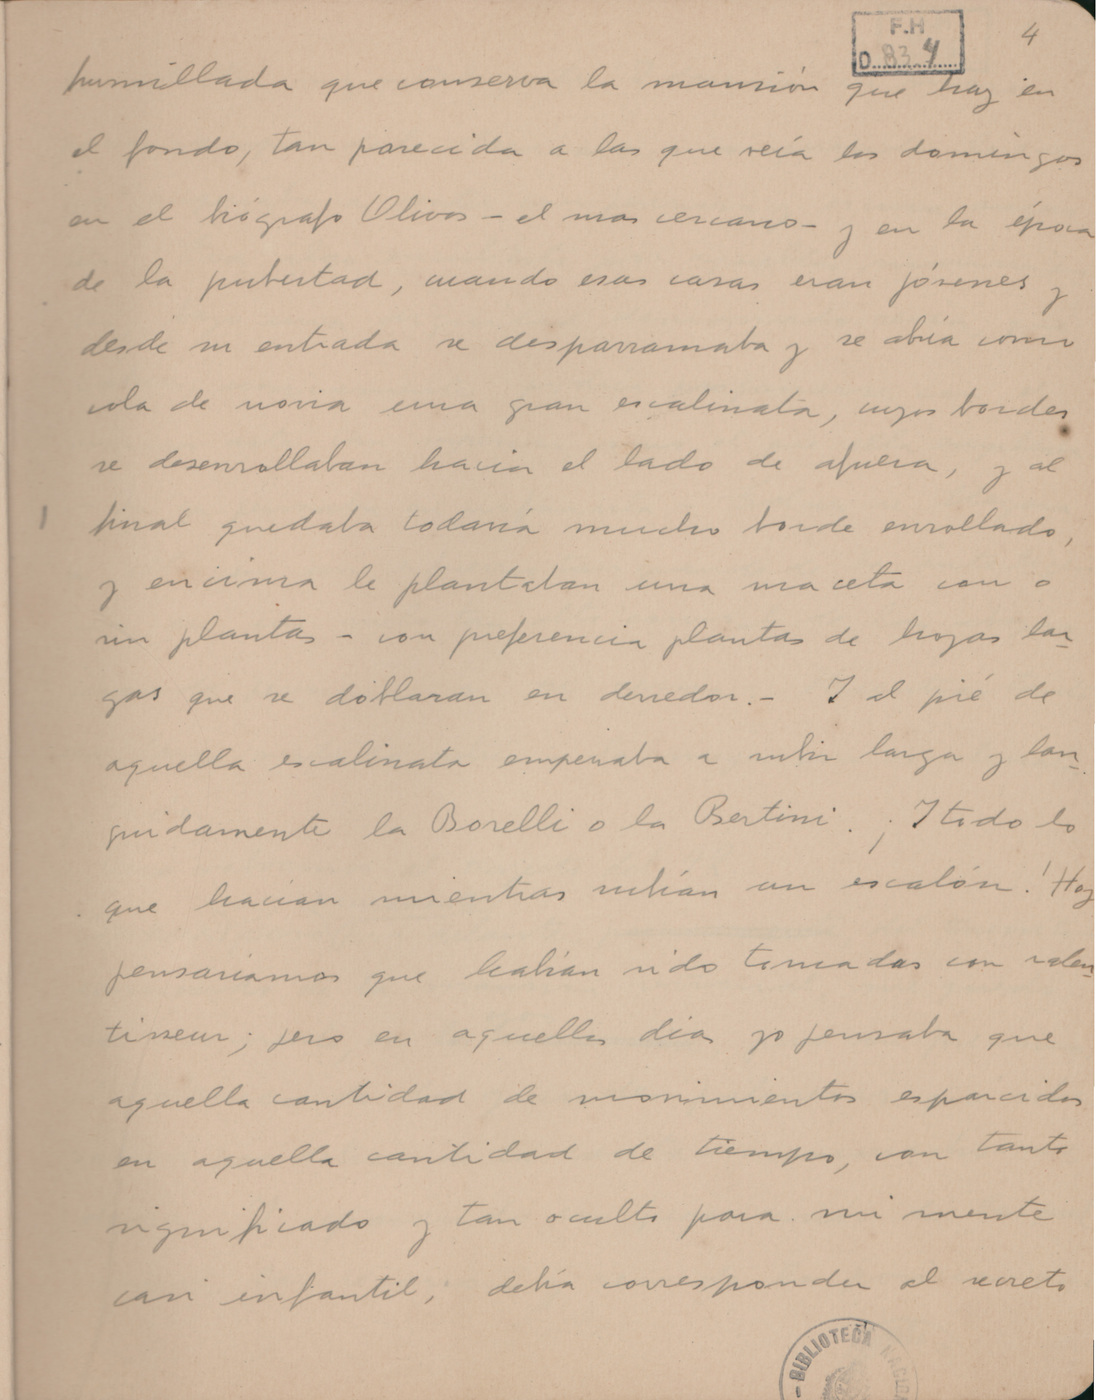 F.H
D. 83.4
4
humillada que conserva la mansión que hay en
el fondo, tan parecida a las que veía los domingos
en el biógrafo Olivos - el mas cercano - y en la época
de la pubertad, cuando esas casas eran jóvenes y
desde su entrada se desparramaba y se abría como
cola de novia una gran escalinata, cuyos bordes
se desenrollaban hacia el lado de afuera, y al
final quedaba todavía mucho borde enrollado,
y encima le plantaban una maceta con o
sin plantas - con preferencia plantas de hojas lar-
gas que se doblaran en derredor. - Y al pié de
aquella escalinata empezaba a subir larga y lan-
guidamente la Borelli o la Bertini. ¡Y todo lo
que hacían mientras subían un escalón! Hoy
pensaríamos que habían sido tomadas con ralen-
tisseur; pero en aquellos días yo pensaba que
aquella cantidad de movimientos esparcidos
en aquella cantidad de tiempo, con tanto
significado y tan oculto para mi mente
casi infantil, debía corresponder al secreto
BIBLIOTECA NACIONAL